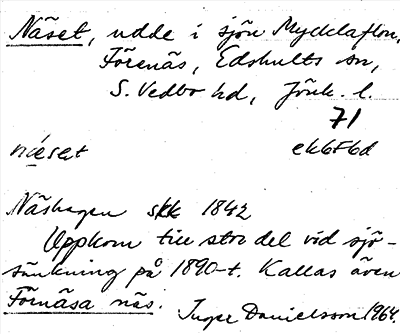 Näset, udde i sjön Mycklaflon,
Förenäs, Edshults sn,
S. Vedbo hd, Jönk. l.
71
næset ek6F6d
Näshagen skk 1842
Uppkom till stor del vid sjö-
sänkning på 1890-t. Kallas även
Förnäsa näs.
Inger Danielsson 1964.